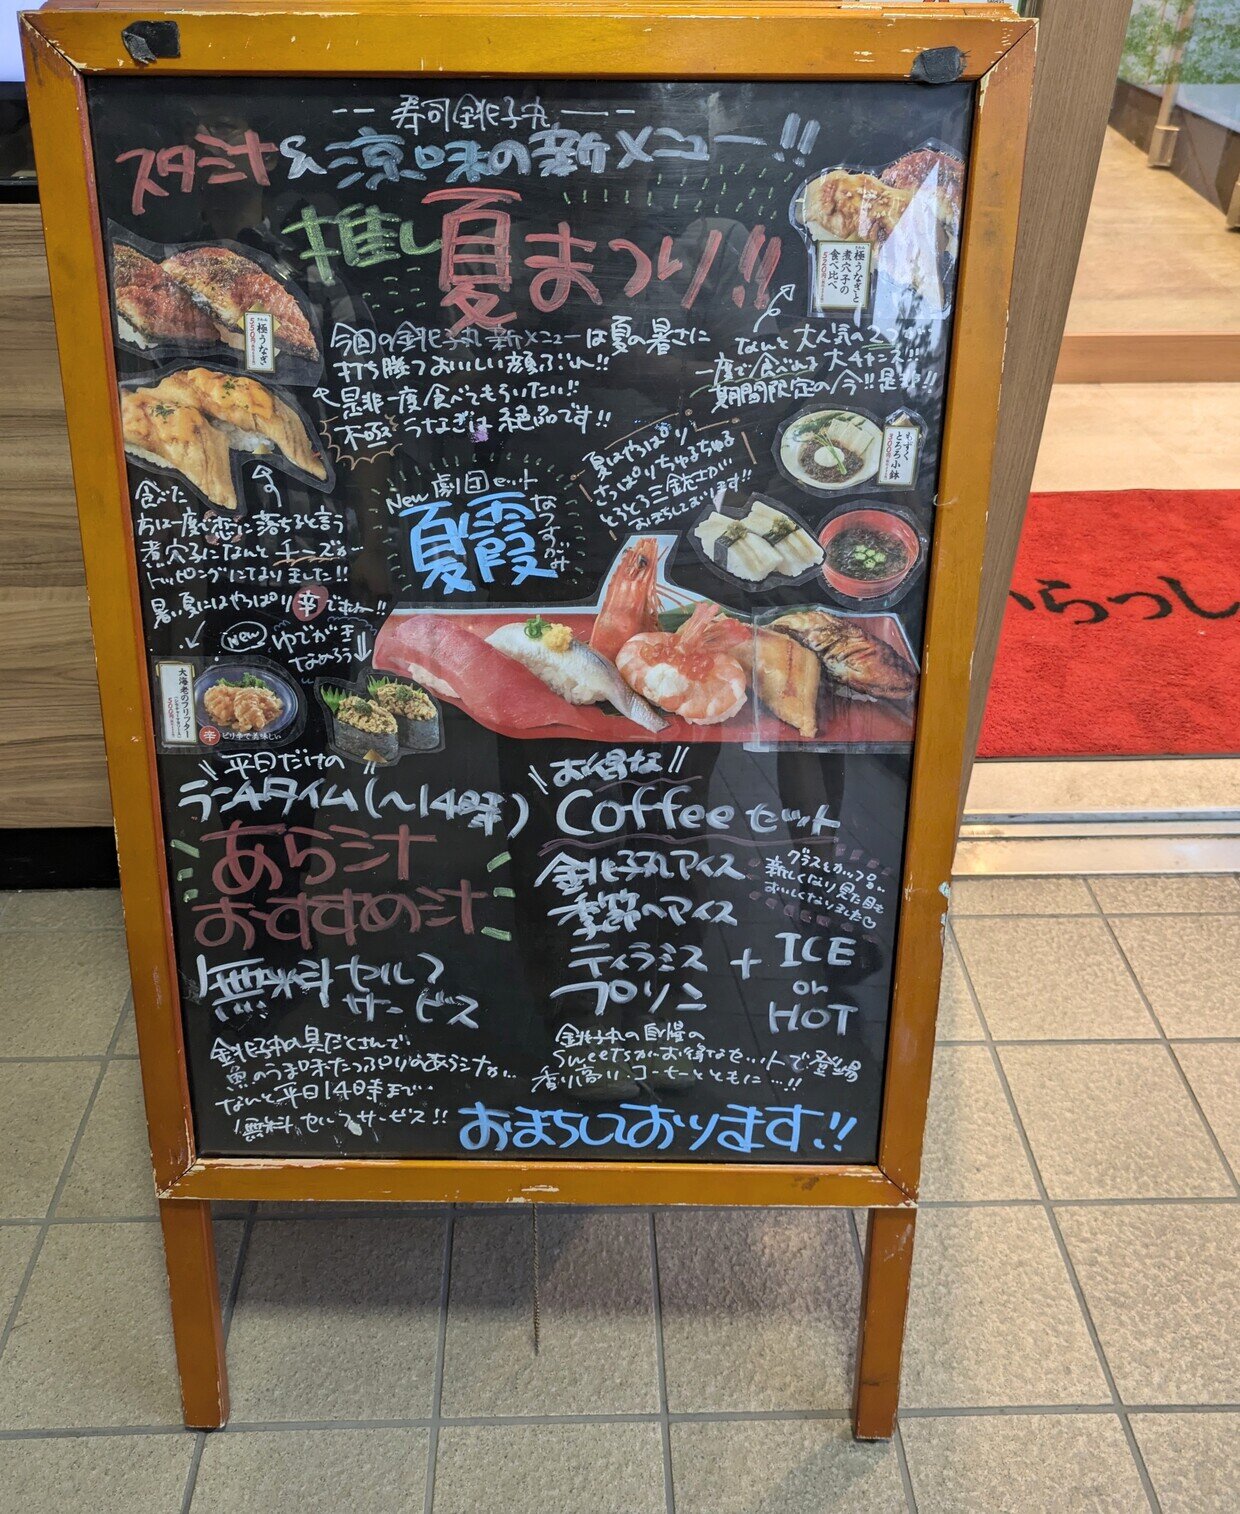 寿司銚子丸
スタミナ&涼味の新メニュー!!
推し夏まつり!!
極うなぎと
煮穴子の
食べ比べ
極うなぎ
今回の銚子丸新メニューは夏の暑さに
打ち勝つおいしい顔ぶれ!!
是非一度食べてもらいたい!!
極うなぎは絶品です!!
なんと大人気の2つが
一度で食べれる大チャンス!!
期間限定の今!!是非!!
食べた
方は一度で恋に落ちると言う
煮穴子になんとチーズが
トッピングにてなりました!!
暑い夏にはやっぱり辛ですねー!!
New ゆでがき
なめろう
New 劇団セット
夏霞
なつがすみ
夏はやっぱり
さっぱりちゅるちゅる
とろとろ三銃士が
おまちしております!!
もずく
とろろ小鉢
300円
大海老のフリッター
500円
辛 ピリ辛で美味しい
平日だけの
ランチタイム(〜14時)
あら汁
おすすめ汁
無料セルフ
サービス
銚子丸の具だくさんで
魚のうま味たっぷりのあら汁が...
なんと平日14時まで..
無料セルフサービス!!
お得な
Coffeeセット
銚子丸アイス
季節のアイス
ティラミス
プリン
+ ICE
or
HOT
グラスもカップも..
新しくなり見た目も
おいしくなりました
銚子丸の自慢の
Sweetsがお得なセットで登場
香り高いコーヒーとともに...!!
おまちしております!!
いらっし